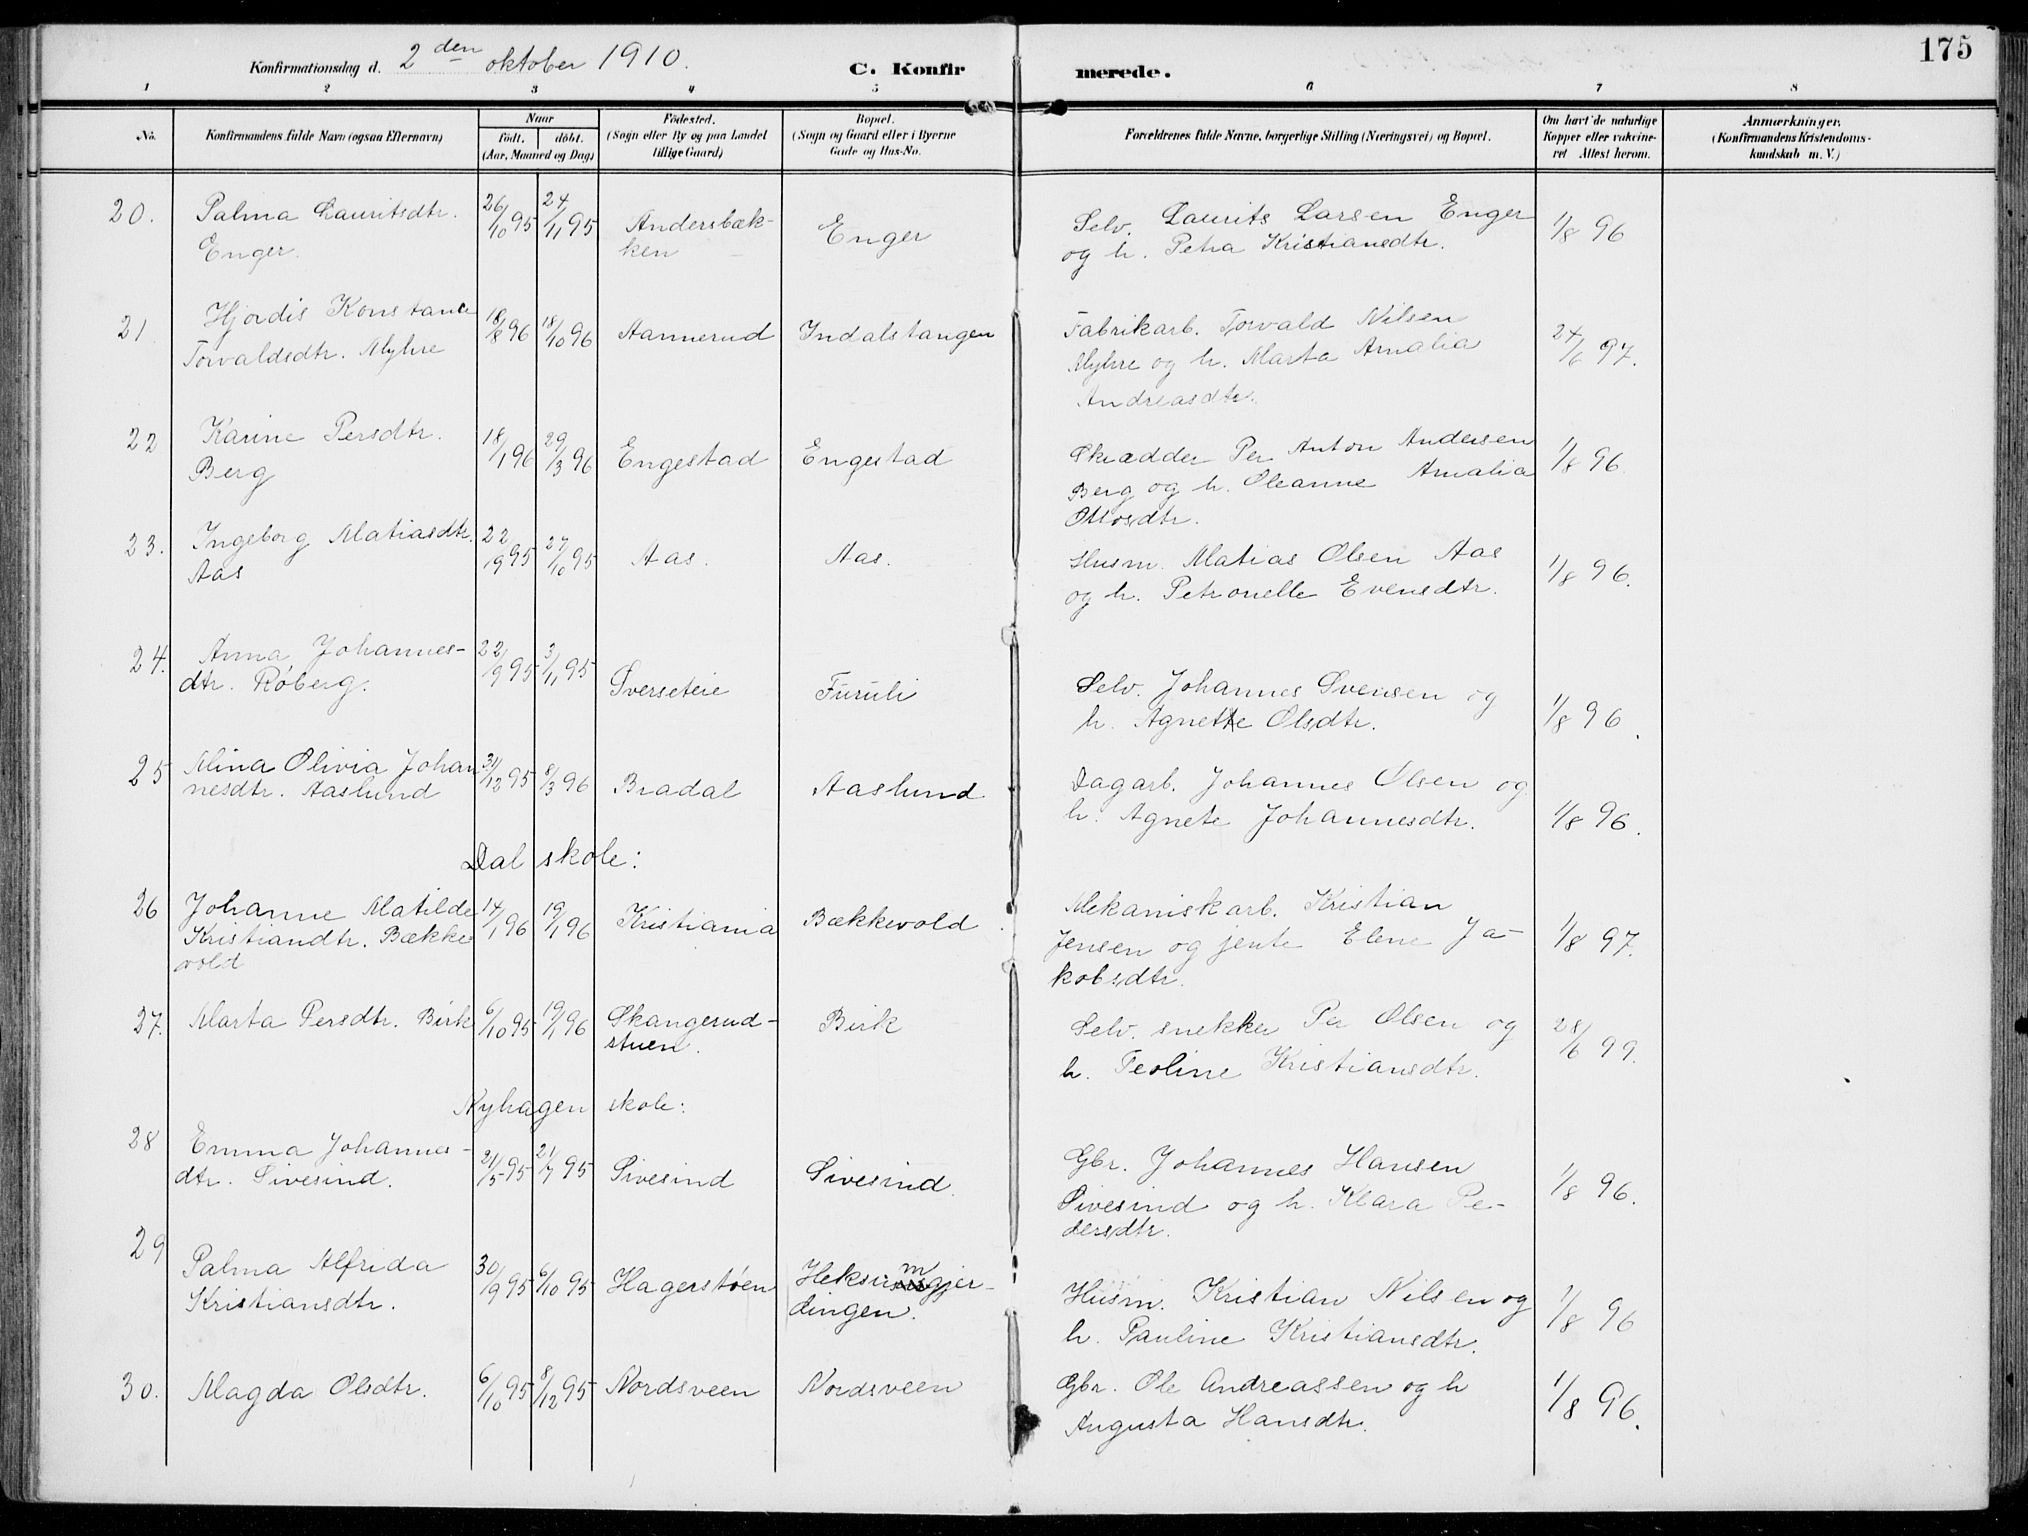 175
Konfirmationsdag d. 2den oktober 1910.
C. Konfirmerede.
1 2 3 4 5 6 7 8
No.
Konfirmandens fulde Navn (ogsaa Efternavn)
Naar
født. døbt.
(Aar, Maaned og Dag)
Fødested.
(Sogn eller By og paa Landet
tillige Gaard)
Bopæl.
(Sogn og Gaard eller i Byerne
Gade og Hus-No.
Forældrenes fulde Navne, borgerlige Stilling (Næringsvei) og Bopæl.
Om havt de naturlige
Kopper eller vakcine-
ret Attest herom.
Anmærkninger.
(Konfirmandens Kristendoms-
kundskab m. V.)
20. Palma Lauritsdtr. 26/10 95 24/11 95 Andersbæk- Enger Selv. Laurits Larsen Enger 1/8 96
Enger. ken og h. Petra Kristiansdtr.
21 Hjørdis Konstance 18/8 96 18/10 96 Aannerud Indalstangen Fabrikarb. Torvald Nilsen 24/6 97.
Torvaldsdtr. Myhre Myhre og h. Marta Amalia
Andreasdtr.
22 Karine Persdtr. 18/1 96 29/3 96 Engestad Engestad Skrædder Per Anton Andersen 1/8 96.
Berg Berg og h. Oleanne Amalia
Ottosdtr.
23. Ingeborg Matiasdtr. 22/9 95 27/10 95 Aas. Aas. Husm. Matias Olsen Aas 1/8 96.
Aas og h. Petronelle Evensdtr.
24. Anna Johannes- 22/9 95 3/11 95 Sverseteie Furuli Selv. Johannes Svensen og 1/8 96.
dtr. Røberg. h. Agnette Olsdtr.
25 Mina Olivia Johan 31/12 95 8/3 96 Bradal Aaslund Dagarb. Johannes Olsen og 1/8 96.
nesdtr. Aaslund h. Agnete Johannesdtr.
Dal skole:
26 Johanne Matilde 14/1 96 19/1 96 Kristiania Bækkevold Mekaniskarb. Kristian 1/8 97.
Kristiandtr. Bække Jensen og jente Elene Ja-
vold kobsdtr.
27. Marta Persdtr. Birk 6/10 95 19/1 96 Skangerud- Birk Selv. snekker Per Olsen og 28/6 99.
stuen. h. Teoline Kristiansdtr.
Nyhagen skole:
28 Emma Johannes- 21/5 95 21/7 95 Sivesind Sivesind. Gbr. Johannes Hansen 1/8 96.
dtr. Sivesind. Sivesind og h. Klara Pe-
dersdtr.
29 Palma Alfrida 30/9 95 6/10 95 Hagerstøen Heksumgjer- Husm. Kristian Nilsen og 1/8 96
Kristiansdtr. dingen. h. Pauline Kristiansdtr.
30. Magda Olsdtr. 6/10 95 8/12 95 Nordsveen Nordsveen Gbr. Ole Andreassen og h 1/8 96.
Augusta Hansdtr.